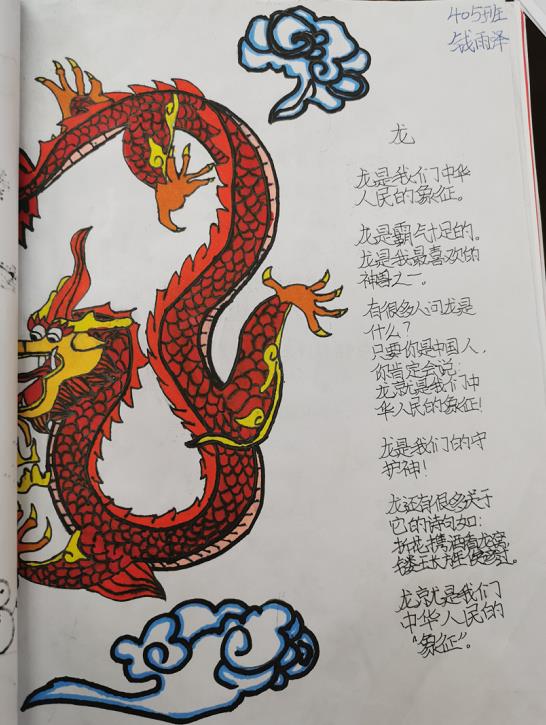 405班
钱雨泽
龙
龙是我们中华
人民的象征。
龙是霸气十足的。
龙是我最喜欢的
神兽之一。
有很多人问龙是
什么？
只要你是中国人，
你肯定会说：
龙就是我们中
华人民的象征！
龙是我们的守
护神！
龙还有很多关于
它的诗句如：
折花携酒看龙宫
龙就是我们
中华人民的
“象征”。